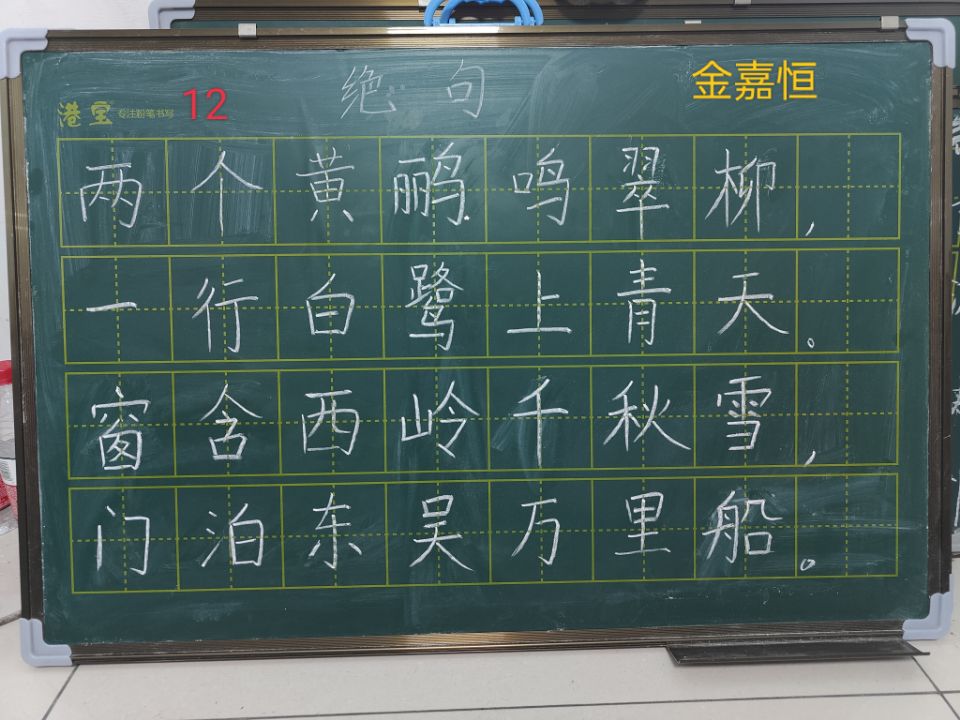 绝句
金嘉恒
港宝 专注粉笔书写
12
两个黄鹂鸣翠柳,
一行白鹭上青天。
窗含西岭千秋雪,
门泊东吴万里船。